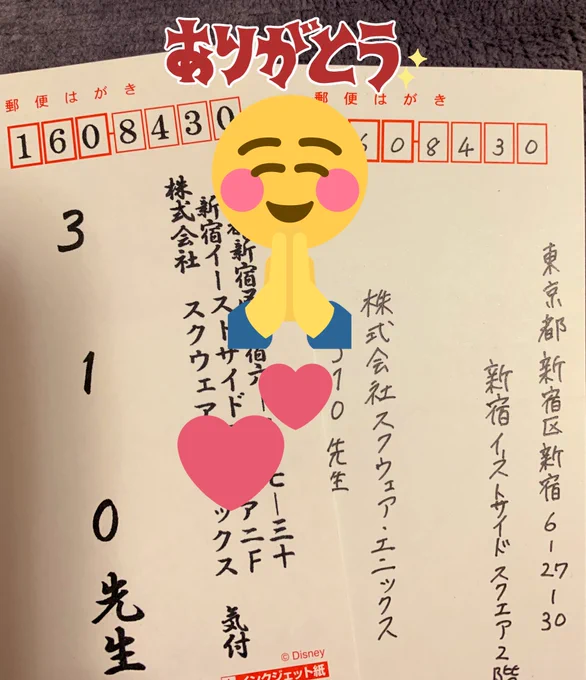 ありがとう
郵便はがき
郵便はがき
1608430
608430
東京都新宿区新宿6-27-30
新宿イーストサイドスクエア2階
株式会社スクウェア・エニックス
310先生
新宿イーストサイド
株式会社 スクウェア
ックス 気付
ア二F
七ー三十
310先生
© Disney
インクジェット紙